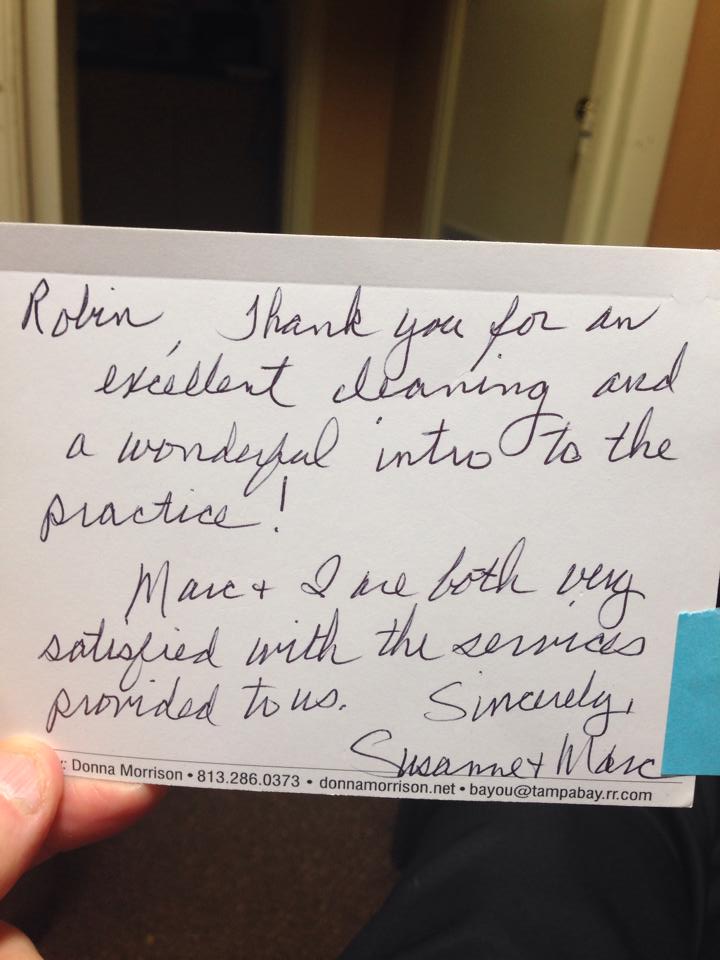 Robin, Thank you for an
excellent cleaning and
a wonderful intro to the
practice!
Marc + I are both very
satisfied with the services
provided to us. Sincerely,
Susanne + Marc
r: Donna Morrison • 813.286.0373 • donnamorrison.net • bayou@tampabay.rr.com